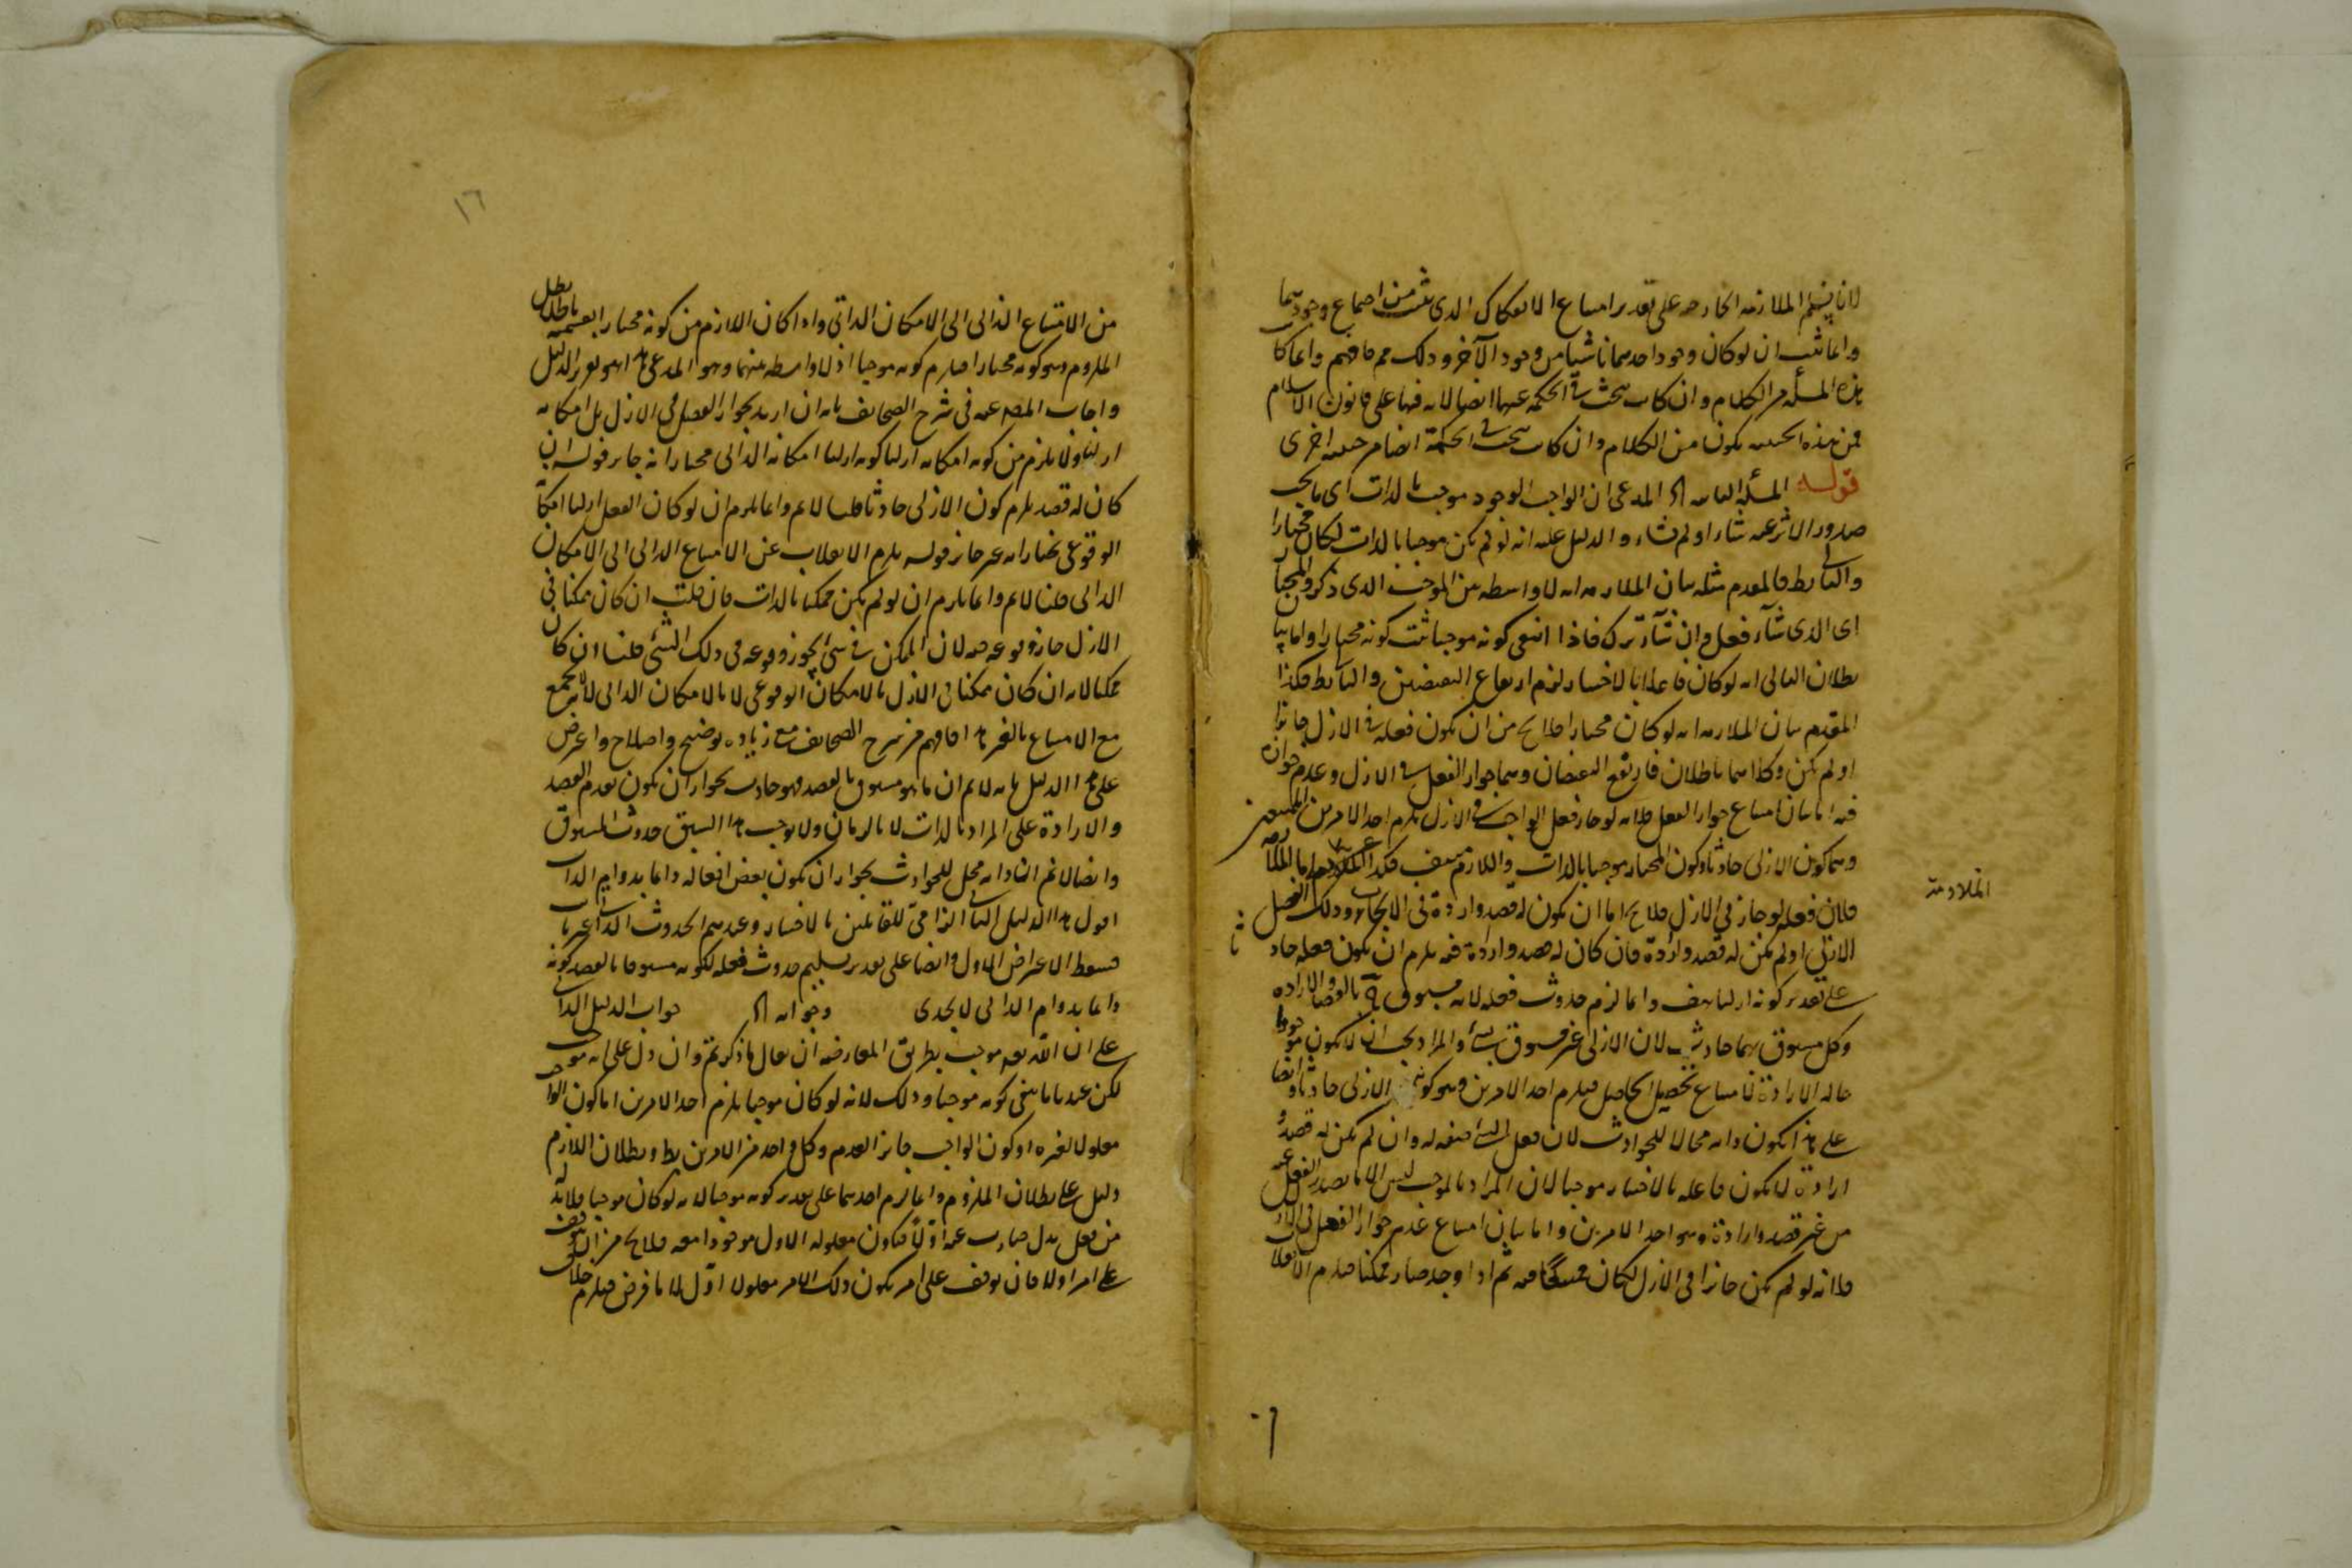 لانا نسلم الملازمة الخارجه على تقدير امتناع الانفكاك الذي ثبت من اجتماع وجودهما
وانما ثبت ان لو كان وجود احدهما ناشيا من وجود الآخر وذلك مم فافهم وانما كا
هذه المسألة من الكلام وان كانت يبحث في الحكمة عنها ايضا لانه فيها على قانون الاسلام
فمن هذه الحيثيه يكون من الكلام وان كانت يبحث في الحكمة ايضا من حيثيه اخرى
قوله المسألة الثانيه المدعى ان الواجب الوجود موجب بالذات اى يجب
صدور الاثر عنه شاء او لم يشاء والدليل عليه انه لو لم يكن موجبا بالذات لكان مختارا
والتالى بط فالمقدم مثله بيان الملازمه انه لا واسطه بين الموجب الذى ذكر و المختار
اى الذى شاء فعل وان شاء ترك فاذا انتفى كونه موجبا ثبت كونه مختارا واما بيان
بطلان التالى انه لو كان فاعلا بالاختيار لزم ارتفاع النقيضين والتالى بط فكذا
المقدم بيان الملازمه انه لو كان مختارا فلا يخ من ان يكون فعله في الازل جائزا
او لم يكن وكلاهما باطلان فارتفع النقيضان وهما جواز الفعل في الازل وعدم جوازه
فيه اما بيان امتناع جواز الفعل فلانه لو جاز فعل الواجب في الازل يلزم احد الامرين الممتنعين
وهما كون الازلى حادثا وكون المختار موجبا بالذات واللازم منتف فكذا الملزوم اما الملازمه
الملازمة
فلان فعله لو جاز في الازل فلا يخ اما ان يكون له قصد وارادة في الايجاب وذلك الفعل
الازلى او لم يكن له قصد وارادة فان كان له قصد وارادة فيه يلزم ان يكون فعله حاد
ثا
على تقدير كونه ازليا هف وانما لزم حدوث فعله لانه مسبوق بالقصد والارادة
وكل مسبوق بهما حادث لان الازلى غير مسبوق بشئ والمراد يجب ان لا يكون موجودا
حالة الارادة لامتناع تحصيل الحاصل فيلزم احد الامرين وهو كون الازلى حادثا وايضا
على هذا يكون ذاته محالا للحوادث لان فعل الشئ صفه له وان لم يكن له قصد و
ارادة لا يكون فاعله بالاختيار موجبا لان المراد بالموجب ليس الا ما يصدر الفعل عنه
من غير قصد وارادة وهو احد الامرين واما بيان امتناع عدم جواز الفعل في الازل
فلانه لو لم يكن جائزا في الازل لكان ممتنعا فيه ثم اذا وجد صار ممكنا فيلزم الانقلاب
١٦
من الامتناع الذاتى الى الامكان الذاتى واذا كان اللازم من كونه مختارا بقسميه باطلا بطل
الملزوم وهو كونه مختارا فيلزم كونه موجبا اذ لا واسطه بينهما وهو المدعى هذا هو تقرير الدليل
واجاب المصـ عنه في شرح الصحايف بانه ان اريد بجواز الفعل في الازل بل امكانه
ازليا ولا يلزم من كونه امكانه ازليا كونه ازليا امكانه الذاتى مختارا انه جايز قوله ان
كان له قصد يلزم كون الازلى حادثا قلنا لانم وانما يلزم ان لو كان الفعل ازليا امكا
الوقوعى نختار انه غير جائز قوله يلزم الانقلاب عن الامتناع الذاتى الى الامكان
الذاتى قلنا لانم وانما يلزم ان لو لم يكن ممكنا بالذات فان قلت ان كان ممكنا في
الازل جاز وقوعه فيه لان الممكن في شئ يجوز وقوعه في ذلك الشئ قلنا ان كان
ممكنا لانه ان كان ممكنا في الازل بالامكان الوقوعى لا بالامكان الذاتى لانه يجتمع
مع الامتناع بالغير هذا فافهم من شرح الصحايف مع زياده توضيح واصلاح واعترض
على هذا الدليل بانه لانم ان ما هو مسبوق بالقصد فهو حادث بجواز ان يكون تقدم القصد
والارادة على المراد بالذات لا بالزمان ولا يوجب هذا السبق حدوث المسبوق
وايضا لا نم انه ذاته محل للحوادث بجواز ان يكون بعض افعاله دائما بدوام الذات
اقول هذا الدليل الثانى الزامى للقائلين بالاختيار وعندهم الحدوث الذاتى غير ثابت
فسقط الاعتراض الاول وايضا على تقدير تسليم حدوث فعله لكونه مسبوقا بالقصد كونه
دائما بدوام الذاتى لا يجدى وجوابه جواب الدليل الذاتى
على ان الله تعـ موجب بطريق المعارضه ان يقال ما ذكرتم وان دل على انه موجب
لكن عندنا ما ينفى كونه موجبا وذلك لانه لو كان موجبا يلزم احد الامرين اما كون الواجب
معلولا لغيره او كون الواجب جائز العدم وكل واحد من الامرين بط وبطلان اللازم
دليل على بطلان الملزوم وانما لزم احدهما على تقدير كونه موجبا لانه لو كان موجبا فلا بد
من فعل بدل صادر عنه اولا فيكون معلوله الاول موجودا معه فلا يخ من ان يتوقف
على امر اولا فان توقف على امر يكون ذلك الامر معلولا اول لا ما فرض فيلزم خلاف